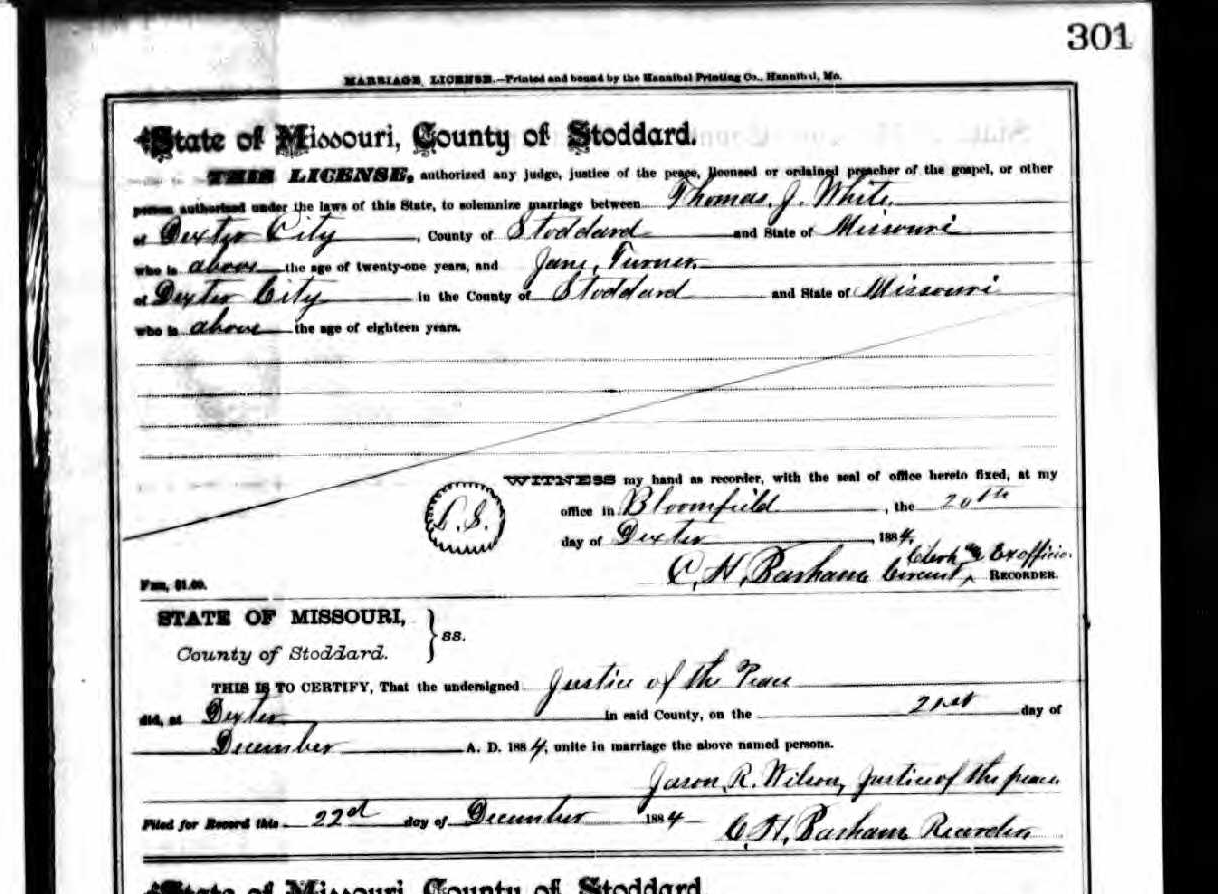 301
MARRIAGE LICENSE.—Printed and bound by the Hannibal Printing Co., Hannibal, Mo.
State of Missouri, County of Stoddard.
THIS LICENSE, authorized any judge, justice of the peace, licensed or ordained preacher of the gospel, or other
person authorized under the laws of this State, to solemnize marriage between Thomas J. White
of Dexter City, County of Stoddard and State of Missouri
who is above the age of twenty-one years, and Jane Turner
of Dexter City in the County of Stoddard and State of Missouri
who is above the age of eighteen years.
WITNESS my hand as recorder, with the seal of office hereto fixed, at my
L. S.
office in Bloomfield, the 20th
day of Dexter, 1884,
Clerk & Exofficio
C. H. Basham Circuit RECORDER.
Fee, $1.00.
STATE OF MISSOURI,
County of Stoddard. } ss.
THIS IS TO CERTIFY, That the undersigned Justice of the Peace
did, at Dexter in said County, on the 21st day of
December A. D. 1884, unite in marriage the above named persons.
Jason R. Wilson, Justice of the peace
Filed for Record this 22d day of December 1884
C. H. Basham Recorder
State of Missouri, County of Stoddard.